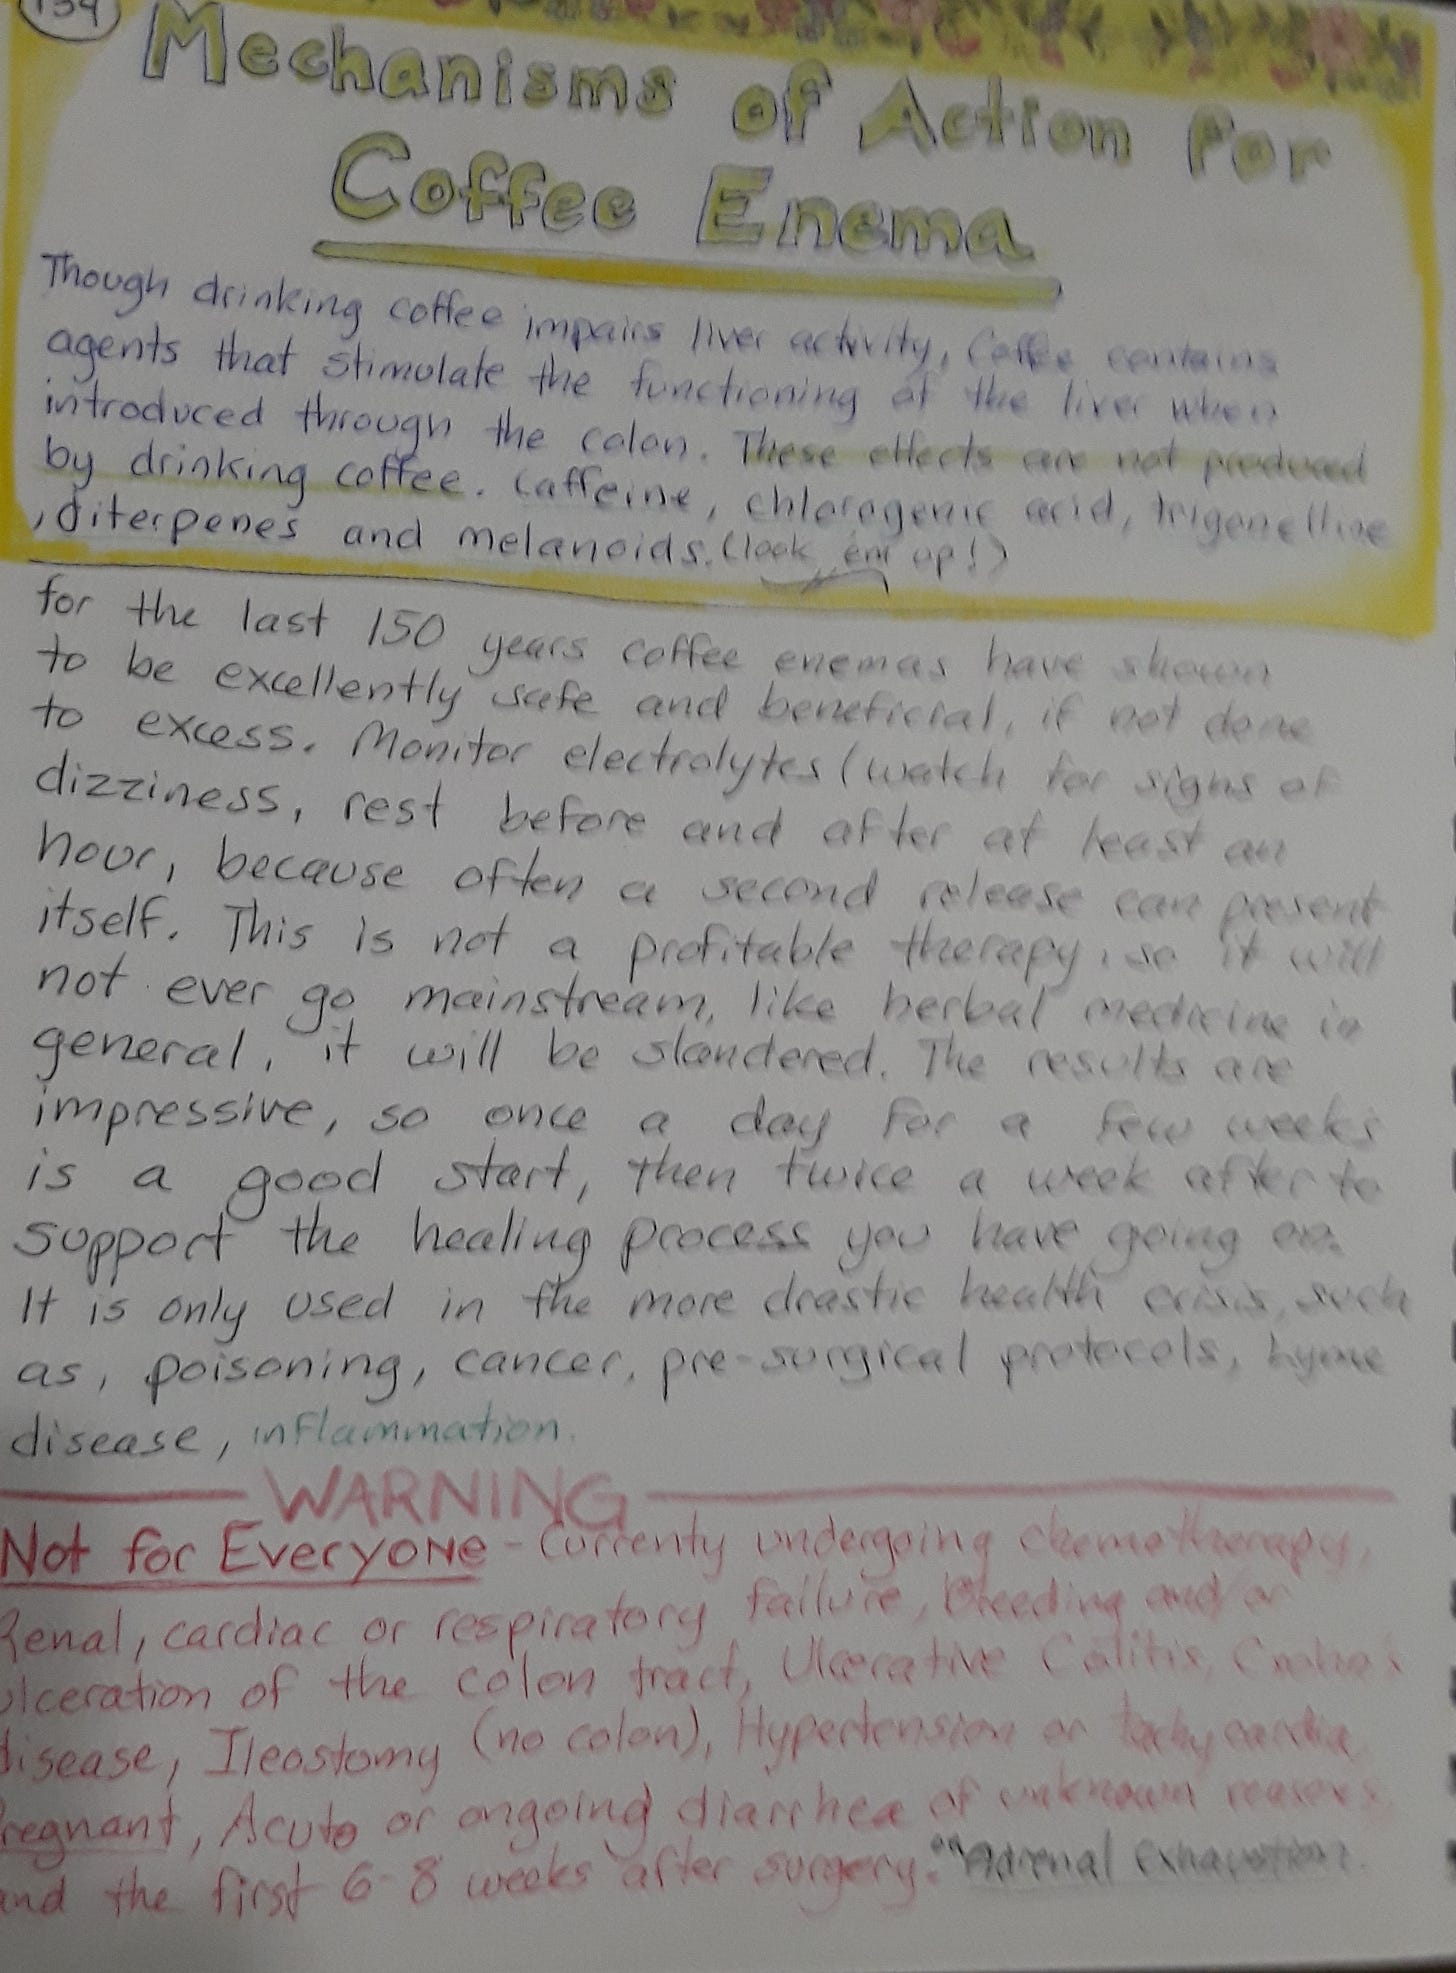 134
Mechanisms of Action for
Coffee Enema
Though drinking coffee impairs liver activity, Coffee contains
agents that stimulate the functioning of the liver when
introduced through the colon. These effects are not produced
by drinking coffee. Caffeine, chlorogenic acid, trigonelline
, diterpenes and melanoids. (look em up!)
for the last 150 years coffee enemas have shown
to be excellently safe and beneficial, if not done
to excess. Monitor electrolytes (watch for signs of
dizziness, rest before and after at least an
hour, because often a second release can present
itself. This is not a profitable therapy, so it will
not ever go mainstream, like herbal medicine in
general, it will be slandered. The results are
impressive, so once a day for a few weeks
is a good start, then twice a week after to
support the healing process you have going on.
It is only used in the more drastic health crisis, such
as, poisoning, cancer, pre-surgical protocols, Lyme
disease, inflammation.
WARNING
Not for Everyone - Currenty undergoing chemotherapy,
Renal, cardiac or respiratory failure, Bleeding and/or
ulceration of the colon tract, Ulcerative Colitis, Crohn's
disease, Ileostomy (no colon), Hypertension or tachycardia
Pregnant, Acute or ongoing diarrhea of unknown reasons
and the first 6-8 weeks after surgery. **Adrenal Exhaustion.